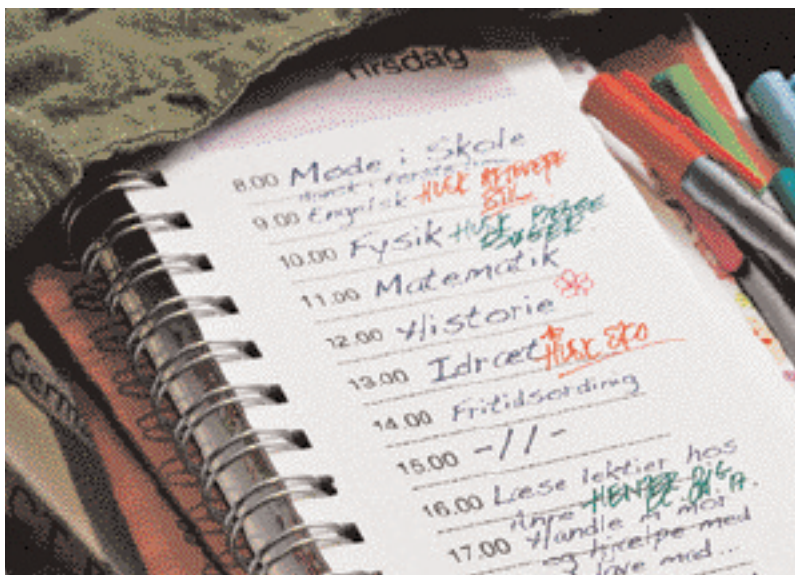 Tirsdag
8.00 Møde i Skole
9.00 Engelsk HUSK
10.00 Fysik HUSK
11.00 Matematik
12.00 Historie
13.00 Idræt HUSK SKO
14.00 Fritidsordning
15.00 -//-
16.00 Læse lektier hos
Anne HENTER DIG
17.00 Handle m mor
og hjælpe med
lave mad...
Germ